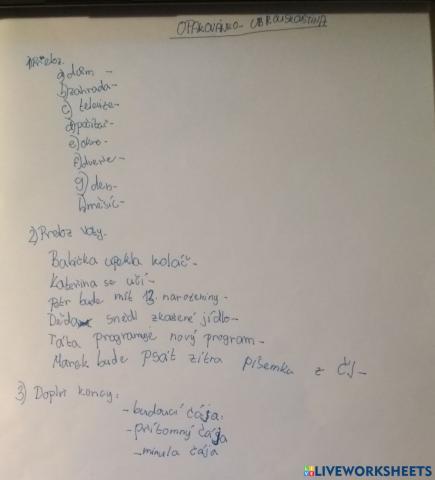 OPAKOVÁNKO- UBROUSKOVŠTINA
1)Přelož.
a) dům -
b) zahrada-
c) televize-
d) počítač-
e) okno-
f) dveře-
g) den-
h) měsíc-
2) Přelož věty.
Babička upekla koláč-
Kateřina se učí-
Petr bude mít 12. narozeniny-
Děda snědl zkažené jídlo-
Táta programuje nový program-
Marek bude psát zítra písemku z ČJ-
3) Doplň konc
-budoucí čája:
-přítomný čája
-minula čája
LIVEWORKSHEETS